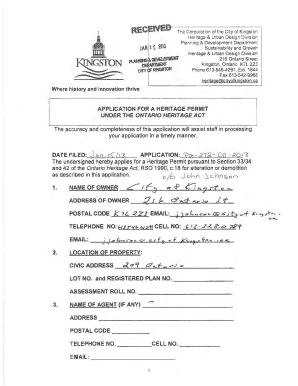 RECEIVED
JAN 15 2013
PLANNING & DEVELOPMENT
DEPARTMENT
CITY OF KINGSTON
KINGSTON
Where history and innovation thrive
The Corporation of the City of Kingston
Heritage & Urban Design Division
Planning & Development Department
Sustainability and Growth
Heritage & Urban Design Division
216 Ontario Street
Kingston, Ontario K7L 2Z3
Phone 613-546-4291 Ext. 1844
heritage@cityofkingston.ca
APPLICATION FOR A HERITAGE PERMIT
UNDER THE ONTARIO HERITAGE ACT
The accuracy and completeness of this application will assist staff in processing
your application in a timely manner.
DATE FILED: Jan. 15/13 APPLICATION:
The undersigned hereby applies for a Heritage Permit pursuant to Section 33/34
and 42 of the Ontario Heritage Act, RSO 1990, c.18 for alteration or demolition
as described in this application.
c/o John Johnson
1. NAME OF OWNER City of Kingston
ADDRESS OF OWNER 216 Ontario St
POSTAL CODE K7L 2Z3 EMAIL: jjohnson@cityofkingston.ca
TELEPHONE NO: CELL NO:
EMAIL: jjohnson@cityofkingston.ca
2. LOCATION OF PROPERTY:
CIVIC ADDRESS 209 Ontario
LOT NO. and REGISTERED PLAN NO.
ASSESSMENT ROLL NO.
3. NAME OF AGENT (IF ANY) —
ADDRESS
POSTAL CODE
TELEPHONE NO. CELL NO:
EMAIL:
1